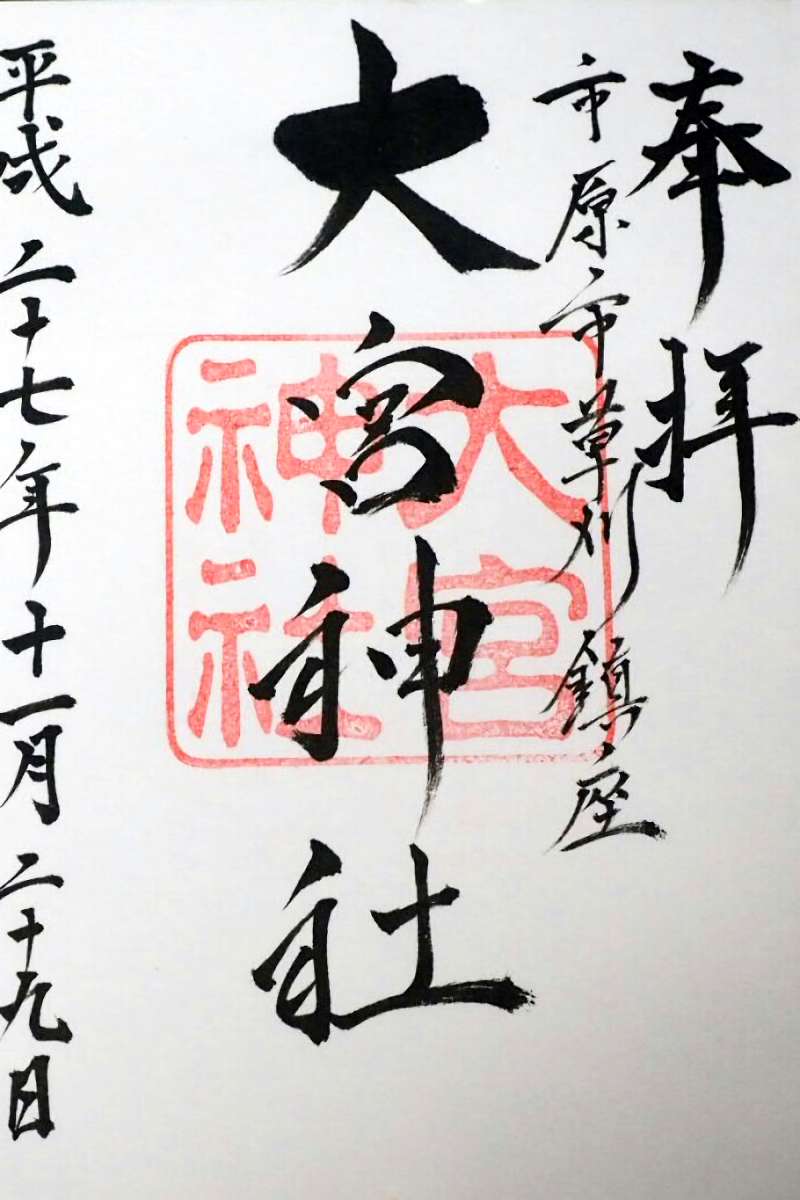 奉拝
市原市草刈鎮座
大宮神社
大宮
神社
平成二十七年十一月二十九日